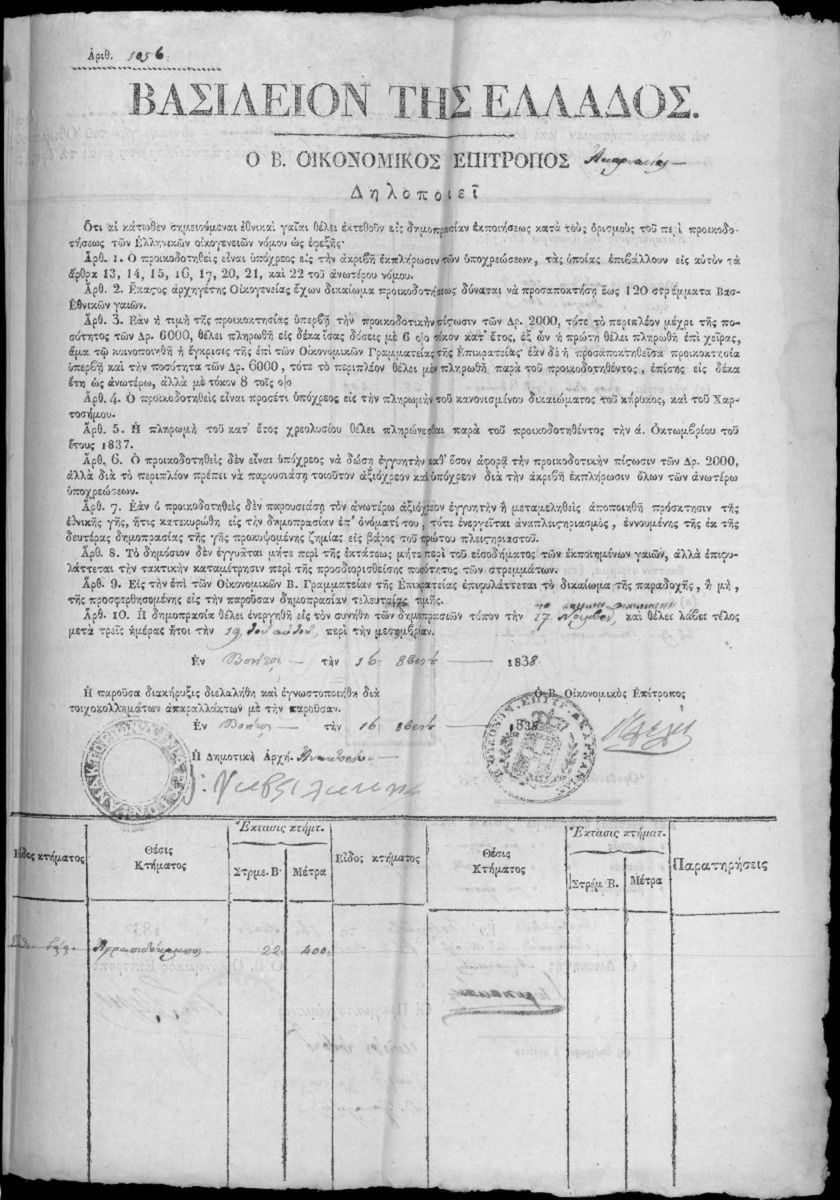 Ἀριθ. 5056
ΒΑΣΙΛΕΙΟΝ ΤΗΣ ΕΛΛΑΔΟΣ.
Ο Β. ΟΙΚΟΝΟΜΙΚΟΣ ΕΠΙΤΡΟΠΟΣ Ἀκαρνανίας
Δηλοποιεῖ
Ὅτι αἱ κάτωθεν σημειούμεναι ἐθνικαὶ γαῖαι θέλει ἐκτεθοῦν εἰς δημοπρασίαν ἐκποιήσεως κατὰ τοὺς ὁρισμοὺς τοῦ περὶ προικοδο-
τήσεως τῶν Ἑλληνικῶν οἰκογενειῶν νόμου ὡς ἐφεξῆς·
Ἀρθ. 1. Ὁ προικοδοτηθεὶς εἶναι ὑπόχρεος εἰς τὴν ἀκριβῆ ἐκπλήρωσιν τῶν ὑποχρεώσεων, τὰς ὁποίας ἐπιβάλλουν εἰς αὐτὸν τὰ
ἄρθρα 13, 14, 15, 16, 17, 20, 21, καὶ 22 τοῦ ἀνωτέρω νόμου.
Ἀρθ. 2. Ἕκαστος ἀρχηγέτης Οἰκογενείας ἔχων δικαίωμα προικοδοτήσεως δύναται νὰ προσαποκτήση ἕως 120 στρέμματα Βασ-
Ἐθνικῶν γαιῶν.
Ἀρθ. 3. Ἐὰν ἡ τιμὴ τῆς προικοκτησίας ὑπερβῆ τὴν προικοδοτικὴν πίστωσιν τῶν Δρ. 2000, τότε τὸ περιπλέον μέχρι τῆς πο-
σότητος τῶν Δρ. 6000, θέλει πληρωθῆ εἰς δέκα ἴσας δόσεις μὲ 6 ο)ο τόκον κατ' ἔτος, ἐξ ὧν ἡ πρώτη θέλει πληρωθῆ ἐπὶ χεῖρας,
ἅμα τῷ κοινοποιηθῆ ἡ ἔγκρισις τῆς ἐπὶ τῶν Οἰκονομικῶν Γραμματείας τῆς Ἐπικρατείας· ἐὰν δὲ ἡ προσαποκτηθεῖσα προικοκτησία
ὑπερβῆ καὶ τὴν ποσότητα τῶν Δρ. 6000, τότε τὸ περιπλέον θέλει μὲν πληρωθῆ παρὰ τοῦ προικοδοτηθέντος, ἐπίσης εἰς δέκα
ἔτη ὡς ἀνωτέρω, ἀλλὰ μὲ τόκον 8 τοῖς ο)ο
Ἀρθ. 4. Ὁ προικοδοτηθεὶς εἶναι προσέτι ὑπόχρεος εἰς τὴν πληρωμὴν τοῦ κανονισμένου δικαιώματος τοῦ κήρυκος, καὶ τοῦ Χαρ-
τοσήμου.
Ἀρθ. 5. Ἡ πληρωμὴ τοῦ κατ' ἔτος χρεολυσίου θέλει πληρώνεσθαι παρὰ τοῦ προικοδοτηθέντος τὴν ά. Ὀκτωμβρίου τοῦ
ἔτους 1837.
Ἀρθ. 6. Ὁ προικοδοτηθεὶς δὲν εἶναι ὑπόχρεος νὰ δώση ἐγγυητὴν καθ' ὅσον ἀφορᾷ τὴν προικοδοτικὴν πίστωσιν τῶν Δρ. 2000,
ἀλλὰ διὰ τὸ περιπλέον πρέπει νὰ παρουσιάση τοιοῦτον ἀξιόχρεον καὶ ὑπόχρεον διὰ τὴν ἀκριβῆ ἐκπλήρωσιν ὅλων τῶν ἀνωτέρω
ὑποχρεώσεων.
Ἀρθ. 7. Ἐὰν ὁ προικοδοτηθεὶς δὲν παρουσιάση τὸν ἀνωτέρω ἀξιόχρεον ἐγγυητὴν ἢ μεταμεληθεὶς ἀποποιηθῆ πρόσκτησιν τῆς
ἐθνικῆς γῆς, ἥτις κατεκυρώθη εἰς τὴν δημοπρασίαν ἐπ' ὀνόματί του, τότε ἐνεργεῖται ἀναπλειστηριασμὸς, ἐννουμένης τῆς ἐκ τῆς
δευτέρας δημοπρασίας τῆς γῆς προκυψομένης ζημίας εἰς βάρος τοῦ πρώτου πλειστηριαστοῦ.
Ἀρθ. 8. Τὸ δημόσιον δὲν ἐγγυᾶται μήτε περὶ τῆς ἐκτάσεως μήτε περὶ τοῦ εἰσοδήματος τῶν ἐκποιημένων γαιῶν, ἀλλὰ ἐπιφυ-
λάττεται τὴν τακτικὴν καταμέτρησιν περὶ τῆς προσδιορισθείσης ποσότητος τῶν στρεμμάτων.
Ἀρθ. 9. Εἰς τὴν ἐπὶ τῶν Οἰκονομικῶν Β. Γραμματείαν τῆς Ἐπικρατείας ἐπιφυλάττεται τὸ δικαίωμα τῆς παραδοχῆς, ἢ μὴ,
τῆς προσφερθησομένης εἰς τὴν παροῦσαν δημοπρασίαν τελευταίας τιμῆς.
Ἀρθ. 10. Ἡ δημοπρασία θέλει ἐνεργηθῆ εἰς τὸν συνήθη τῶν δημοπρασιῶν τόπον τὴν 17 Νοεμβρ καὶ θέλει λάβει τέλος
μετὰ τρεῖς ἡμέρας ἤτοι τὴν 19 τοῦ αὐτοῦ, περὶ τὴν μεσημβρίαν.
Ἐν Βονίτσῃ τὴν 16 8βρίου 1838
Ἡ παροῦσα διακήρυξις διελαλήθη καὶ ἐγνωστοποιήθη διὰ
τοιχοκολλημάτων ἀπαραλλάκτων μὲ τὴν παροῦσαν.
Ἐν Βονίτσῃ τὴν 16 8βρίου 1838
Ὁ Β. Οἰκονομικὸς Ἐπίτροπος
Ἡ Δημοτικὴ Ἀρχὴ Ἀνακτορίου
Εἶδος κτήματος Θέσις Κτήματος Ἔκτασις κτήμτ. Στρμε. Β· Μέτρα Εἶδος κτήματος Θέσις Κτήματος Ἔκτασις κτήματ. Στρέμ Β. Μέτρα Παρατηρήσεις
22 400